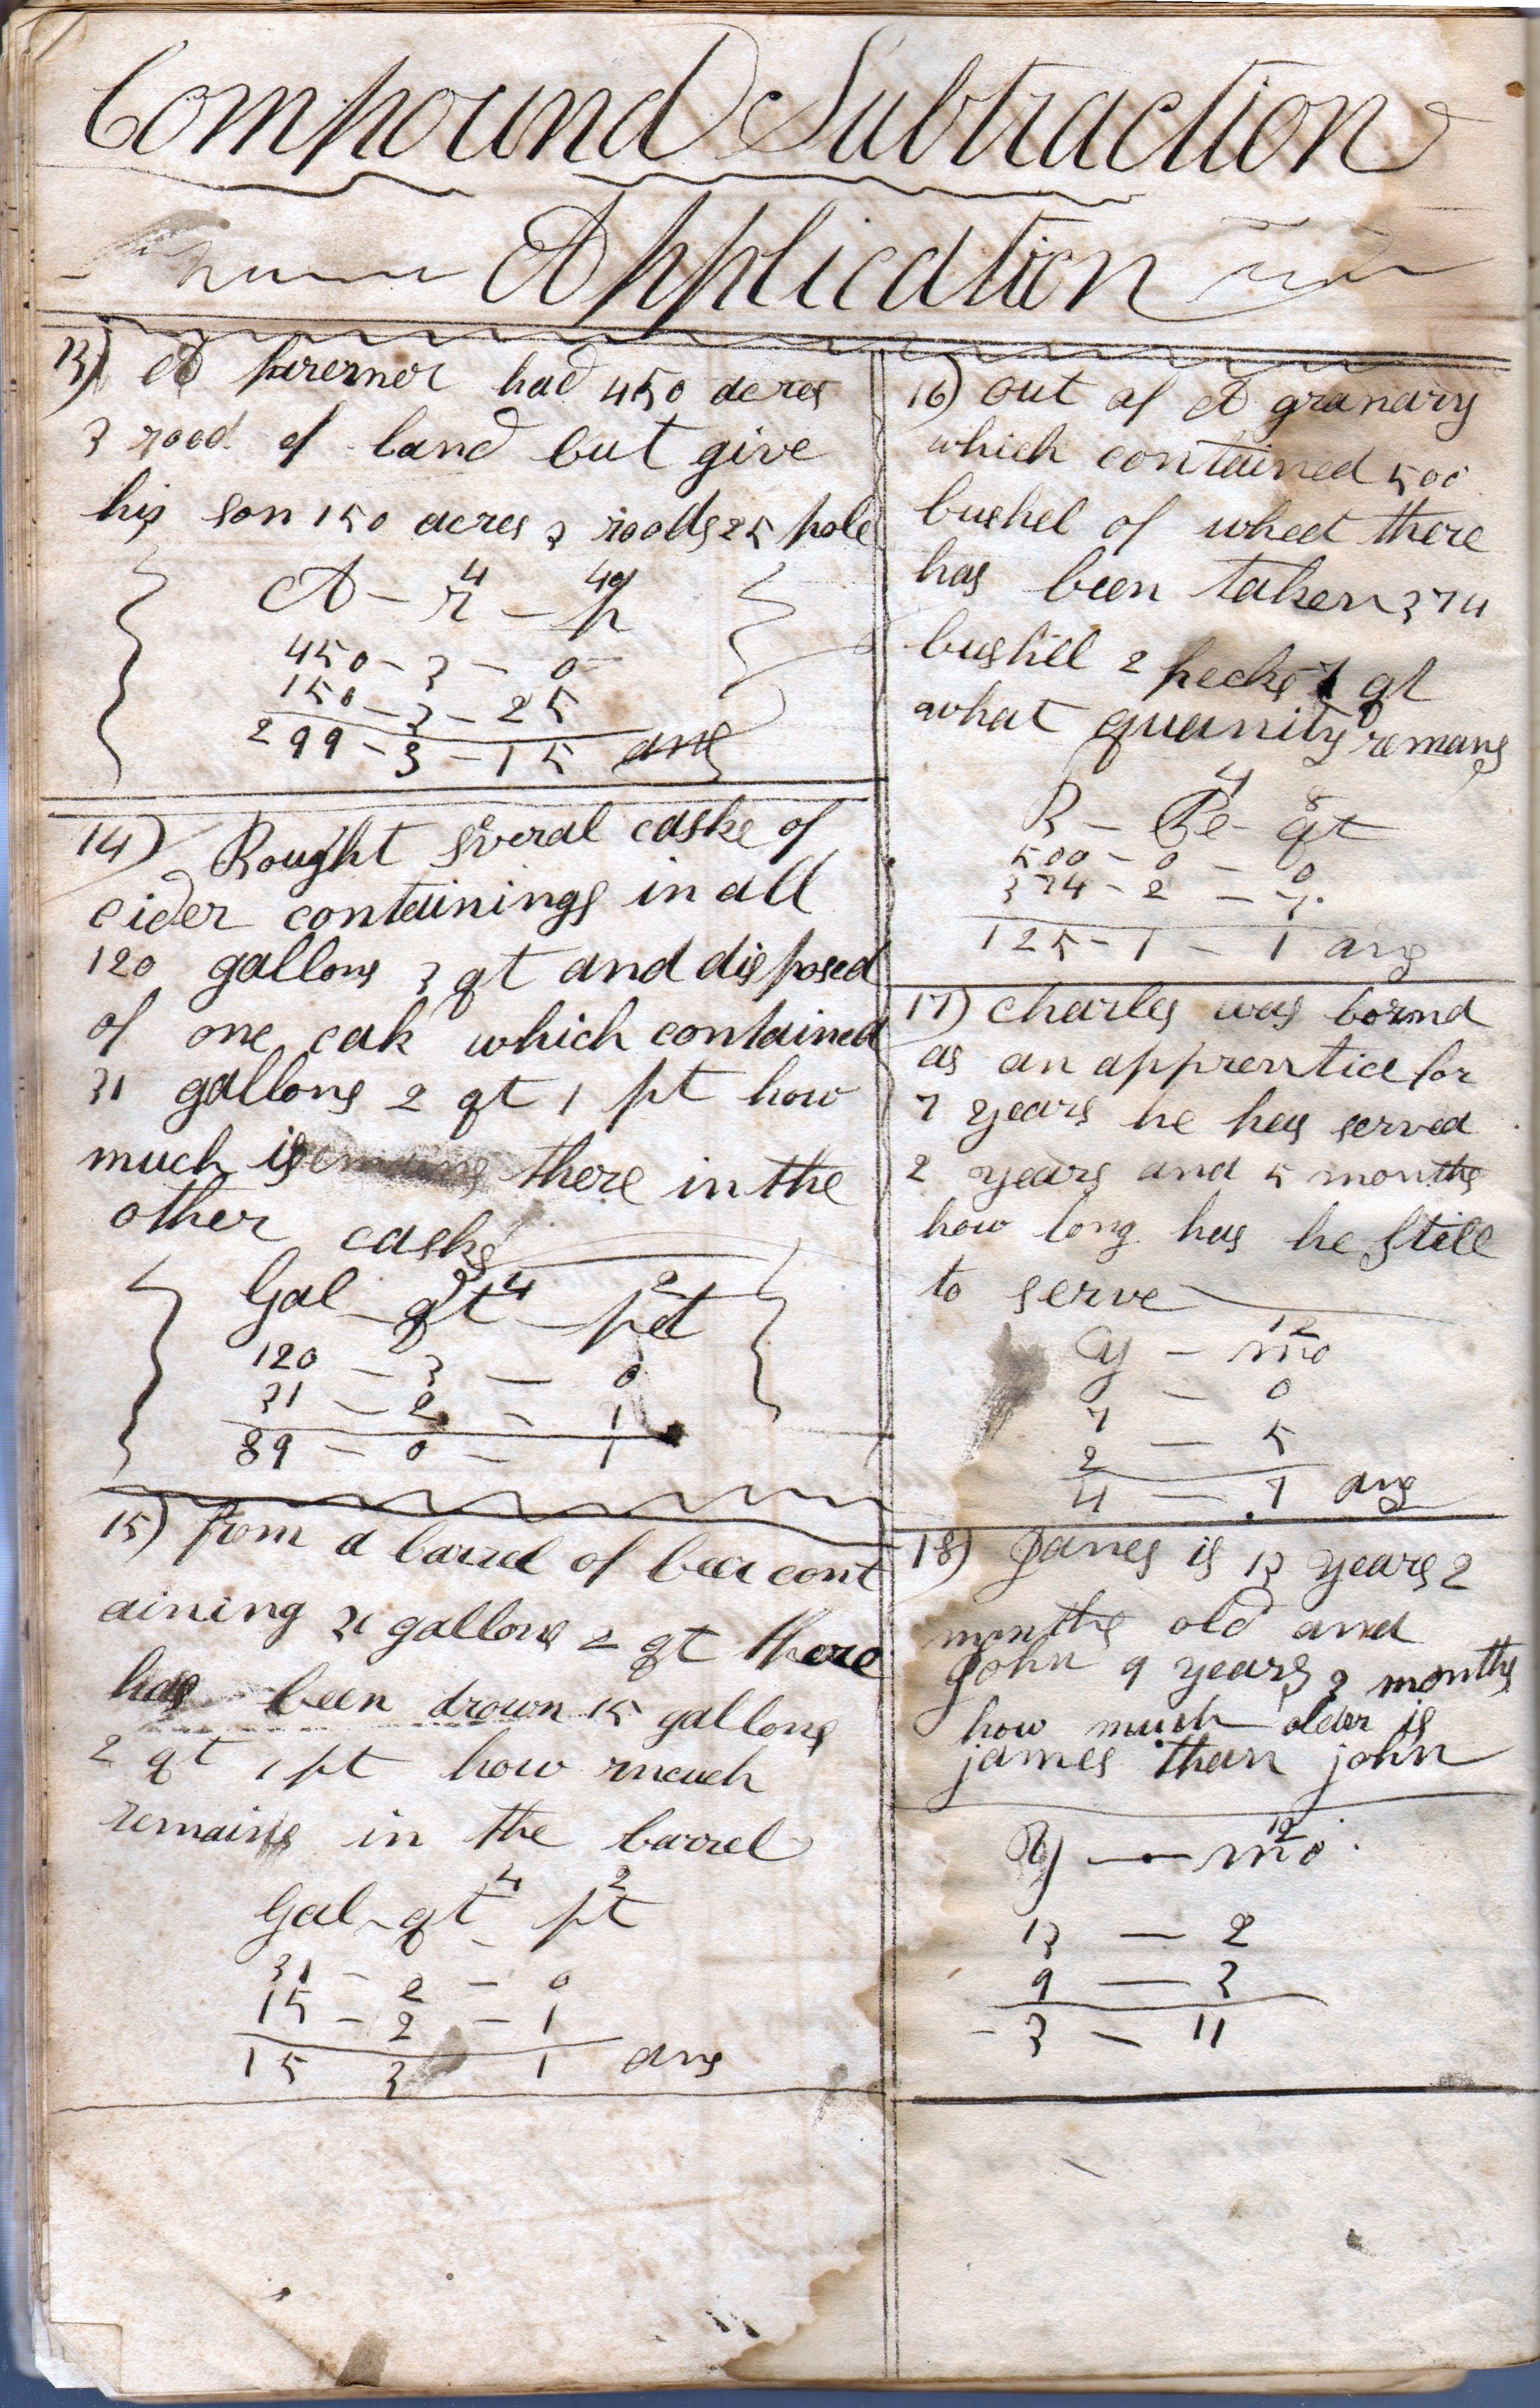 Compound Subtraction
Application
13) A farermer had 450 acres
3 rood of land but give
his son 150 acres 3 roods 25 pole
A - r - p
4 40
450 - 3 - 0
150 - 3 - 25
299 - 3 - 15 ans
14) Bought sveral caske of
cider containings in all
120 gallons 3 qt and disposed
of one cak which contained
31 gallons 2 qt 1 pt how
much is there in the
other casks
Gal - qt - pt
4 2
120 - 3 - 0
31 - 2 - 1
89 - 0 - 1
15) from a barrel of beer cont
aining 31 gallons 2 qt there
has been drown 15 gallons
2 qt 1 pt how much
remains in the barrel
4 2
Gal - qt - pt
31 - 2 - 0
15 - 2 - 1
15 3 1 ans
16) out of A granary
which contained 500
bushel of wheet there
has been taken 374
bushill 2 pecks 7 qt
what quanity remans
4 8
B - Pe - qt
500 - 0 - 0
374 - 2 - 7
125 - 1 - 1 ans
17) charles was bornd
as an apprentice for
7 years he has served
2 years and 5 months
how long has he still
to serve
12
y - mo
7 - 0
2 - 5
4 - 7 ans
18) James is 13 years 2
months old and
John 9 years 3 months
how much older is
james than john
12
y - mo
13 - 2
9 - 3
3 - 11